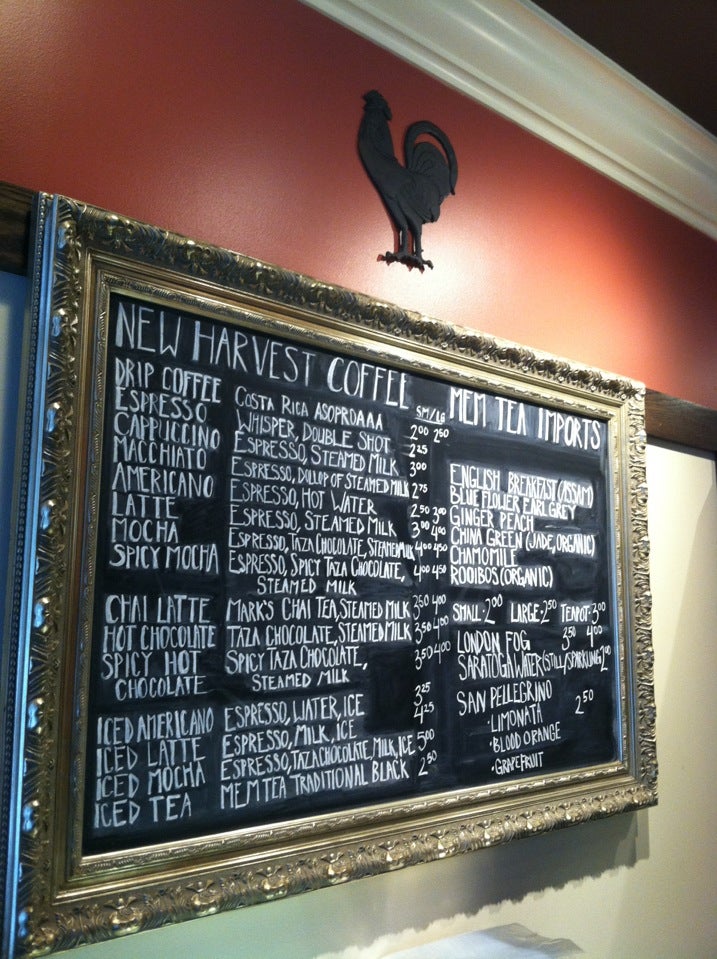 NEW HARVEST COFFEE
SM/LG
DRIP COFFEE COSTA RICA ASOPROAAA 2.00 2.50
ESPRESSO WHISPER, DOUBLE SHOT 2.25
CAPPUCCINO ESPRESSO, STEAMED MILK 3.00
MACCHIATO ESPRESSO, DOLLOP OF STEAMED MILK 2.75
AMERICANO ESPRESSO, HOT WATER 2.50 3.00
LATTE ESPRESSO, STEAMED MILK 3.00 4.00
MOCHA ESPRESSO, TAZA CHOCOLATE, STEAMED MILK 4.00 4.50
SPICY MOCHA ESPRESSO, SPICY TAZA CHOCOLATE, 4.00 4.50
STEAMED MILK
CHAI LATTE MARK'S CHAI TEA, STEAMED MILK 3.50 4.00
HOT CHOCOLATE TAZA CHOCOLATE, STEAMED MILK 3.50 4.00
SPICY HOT SPICY TAZA CHOCOLATE, 3.50 4.00
CHOCOLATE STEAMED MILK
ICED AMERICANO ESPRESSO, WATER, ICE 3.25
ICED LATTE ESPRESSO, MILK, ICE 4.25
ICED MOCHA ESPRESSO, TAZA CHOCOLATE, MILK, ICE 5.00
ICED TEA MEM TEA TRADITIONAL BLACK 2.50
MEM TEA IMPORTS
ENGLISH BREAKFAST (ASSAM)
BLUE FLOWER EARL GREY
GINGER PEACH
CHINA GREEN (JADE, ORGANIC)
CHAMOMILE
ROOIBOS (ORGANIC)
SMALL • 2.00 LARGE • 2.50 TEAPOT • 3.00
LONDON FOG 3.50 4.00
SARATOGA WATER (STILL/SPARKLING) 2.00
SAN PELLEGRINO 2.50
• LIMONATA
• BLOOD ORANGE
• GRAPEFRUIT